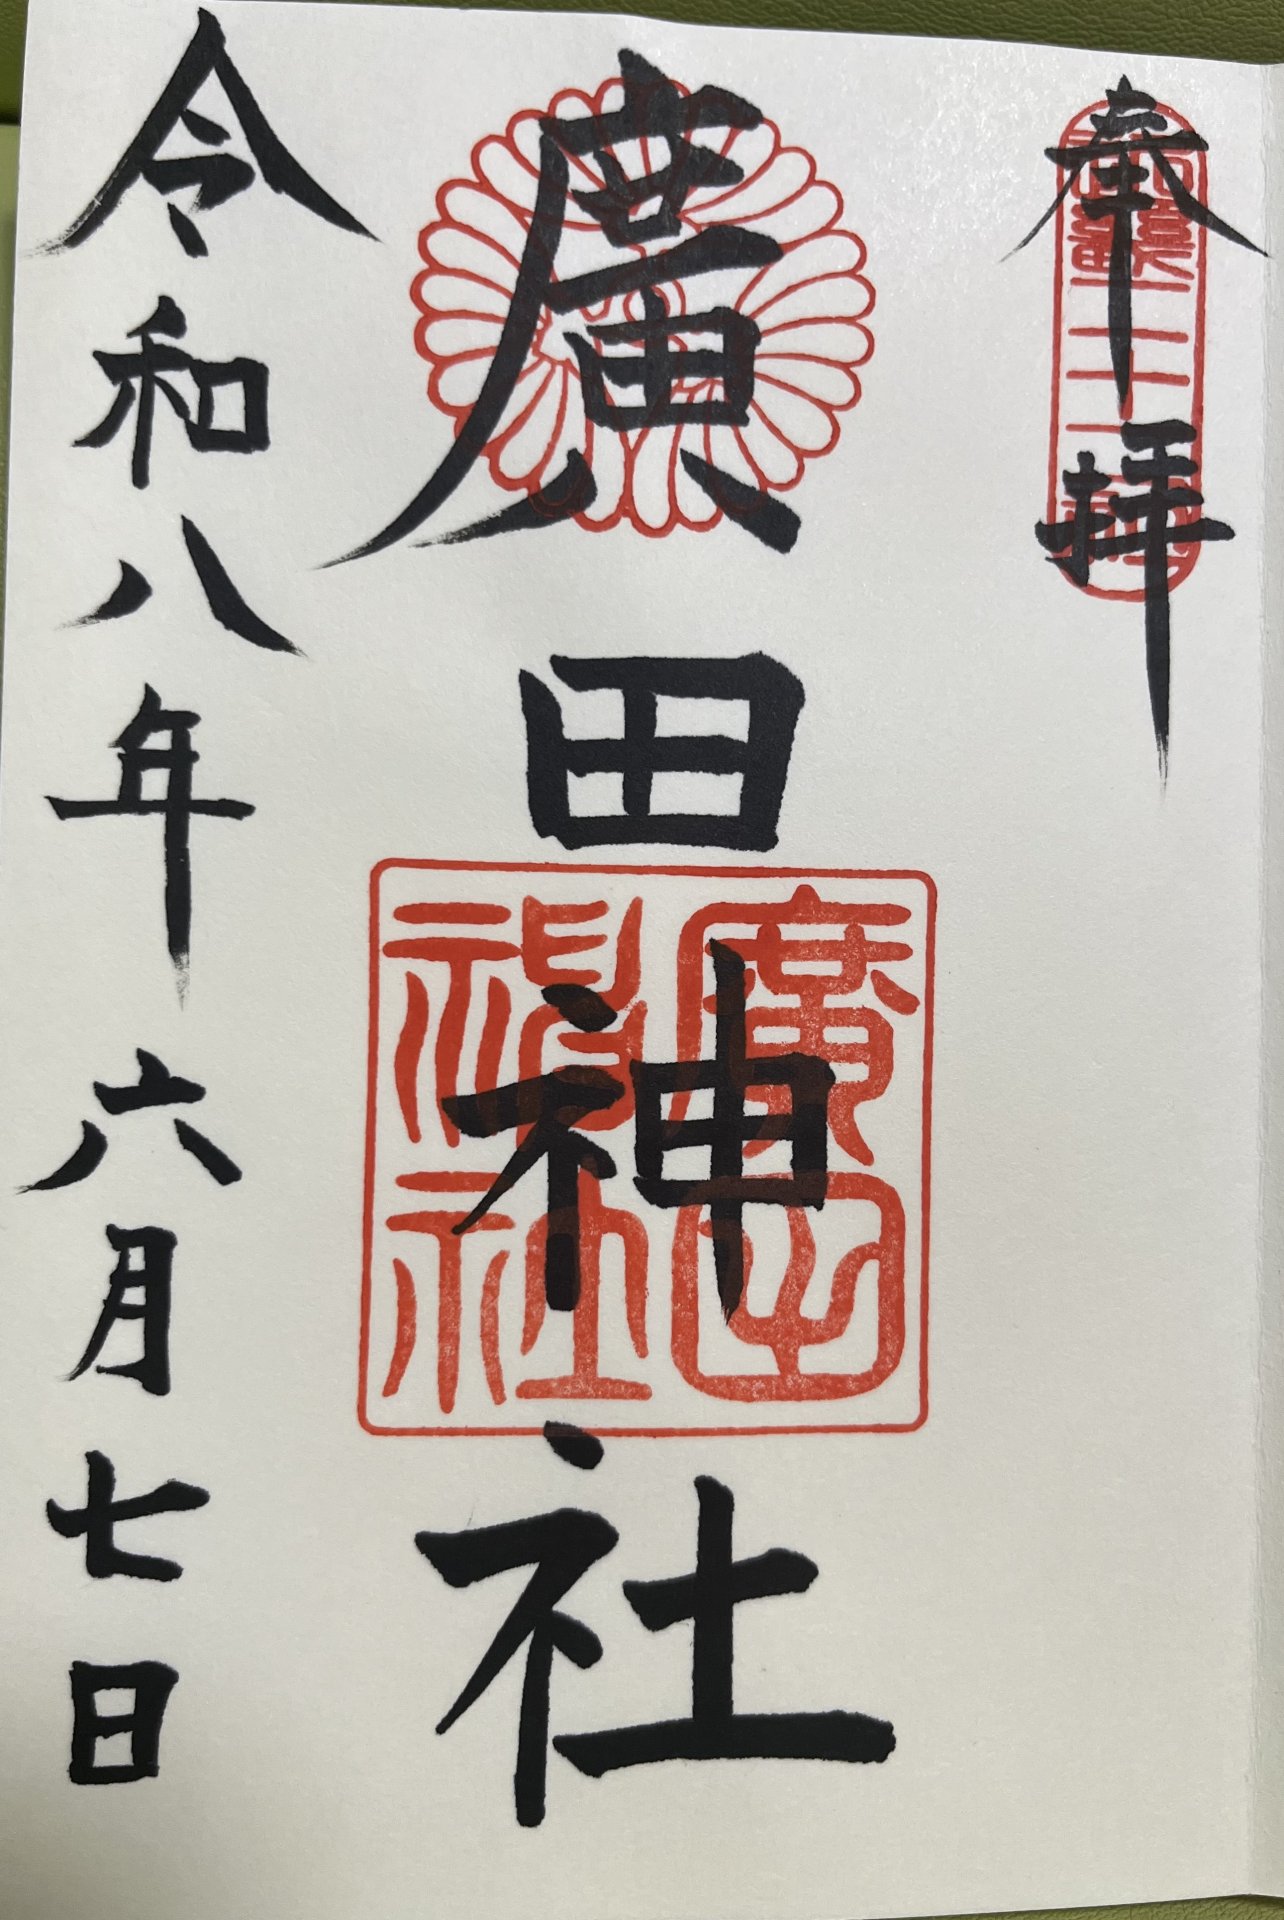 奉拝
廣田神社
廣田神社
令和八年六月七日